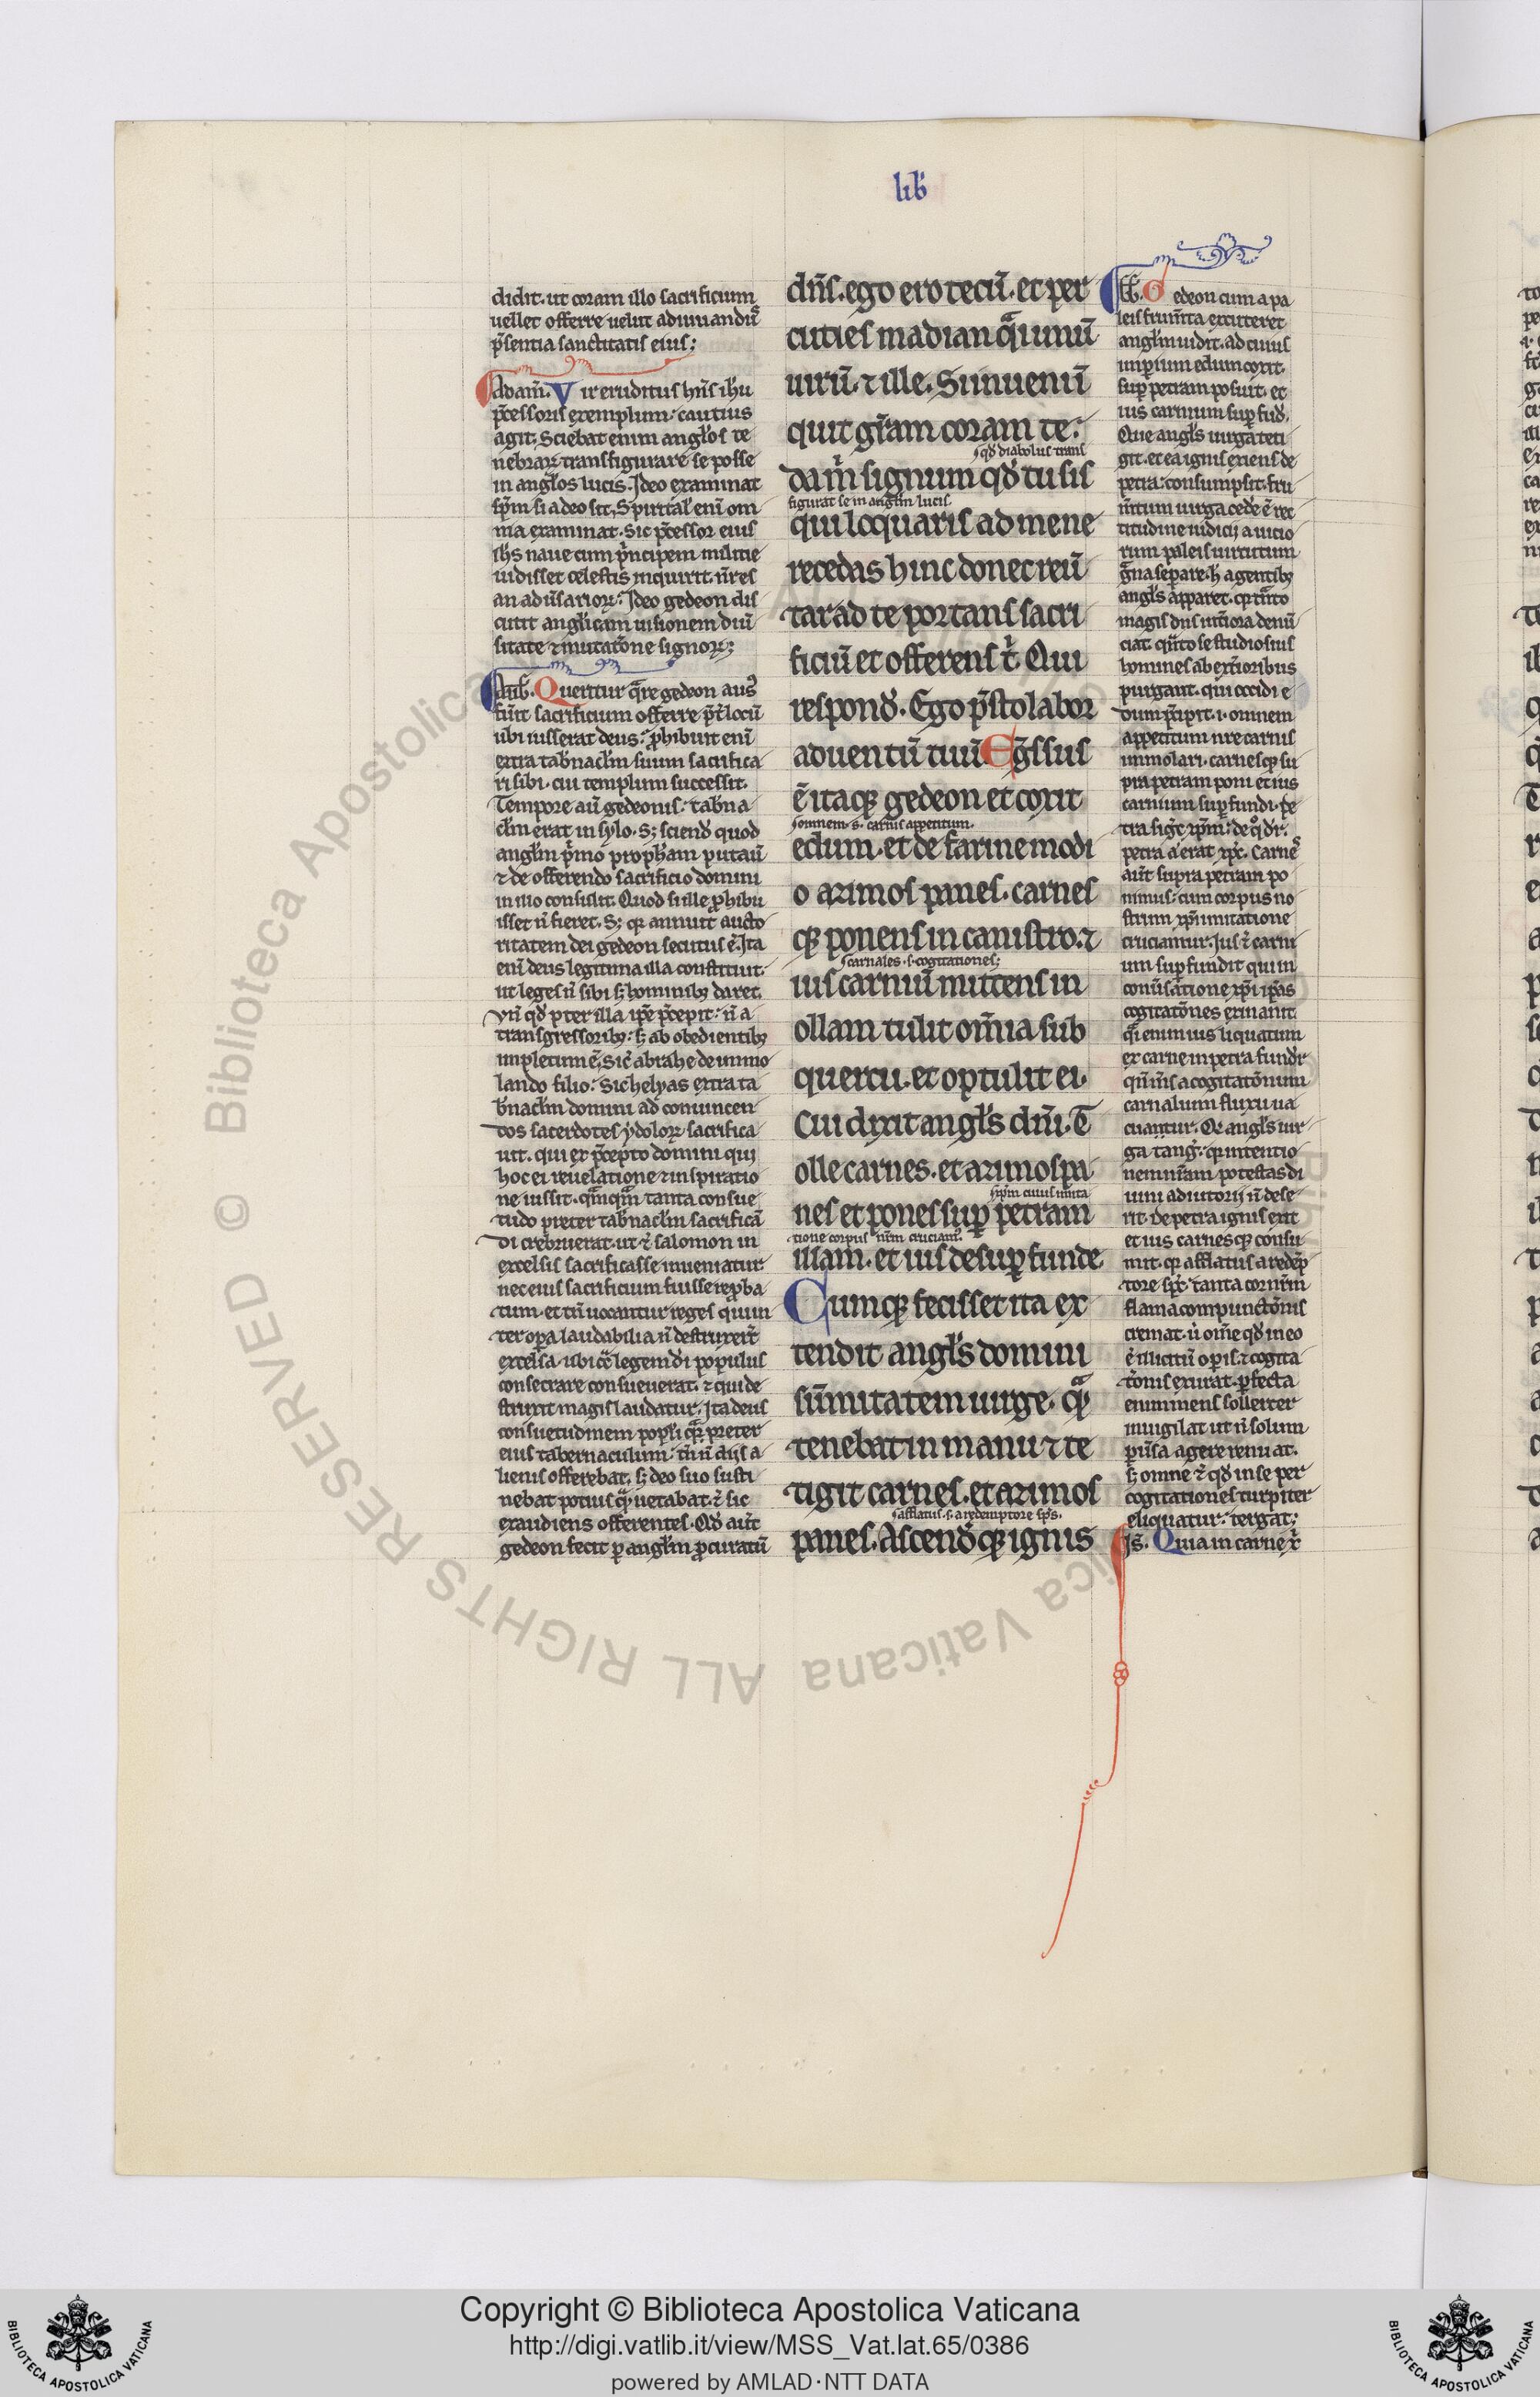 lib̄
didit. ut coram illo sacrificium
uellet offerre uelut adiuuandꝰ
p̄sentia sanctitatis eius;
Adam̄. Vir eruditus hn̄s ihu
p̄cessoris exemplum: cautius
agit. Sciebat enim angl̄os te
nebraꝝ transfigurare se posse
in angl̄os lucis. Ideo examinat
sp̄m si a deo sit. Spiritał enī om
nia examinat. Sic p̄cessor eius
ih̄s naue cum p̄ncipem militie
uidisset celestis inquirit. n̄r es
an adūsarioꝝ. Ideo gedeon dis
cutit angl̄icam uisionem diū
sitate ⁊ mutatōne signoꝝ;
Aub̄. Queritur q̄re gedeon aus
fūit sacrificium offerre p̄t̄ locū
ubi iusserat deus. p̄hibuit enī
extra tab̄nacl̄m suum sacrifica
ri sibi. cui templum successit.
Tempore aū gedeonis: tab̄na
cl̄m erat in sylo. S; sciend̄ quod
angl̄m p̄mo proph̄am putaū
⁊ de offerendo sacrificio domini
in illo consuluit. Quod si ille p̄hibu
isset n̄ fieret. S; qꝛ annuit aucto
ritatem dei gedeon secutus ē. Ita
enī deus legitima illa constituit.
ut leges n̄ sibi s; hominibꝫ daret.
Vn̄ qd̄ p̄ter illa ip̄e p̄cepit: n̄ a
transgressoribꝫ: s; ab obedientibꝫ
impletum ē. Sic̄ abrahe de immo
lando filio. Sic helyas extra ta
b̄nacl̄m domini ad conuincen
dos sacerdotes ydoloꝝ sacrifica
uit. qui ex p̄cepto domini qui
hoc ei reuelatione ⁊ inspiratio
ne iussit. q̄mq̄m tanta consue
tudo preter tab̄nacl̄m sacrificā
di crebruerat. ut ⁊ salomon in
excelsis sacrificasse inueniatur
nec eius sacrificium fuisse rep̄ba
tum. et tn̄ uocantur reges qui in
ter opa laudabilia n̄ destruxer̄t
excelsa. ubi cō̄ legem dī populus
consecrare consueuerat. ⁊ qui de
struxit magis laudatur. Ita deus
consuetudinem popłi q̄ꝫ preter
eius tabernaculum: tn̄ n̄ diis a
lienis offerebat. s; deo suo susti
nebat potius q̄ uetabat. ⁊ sic
exaudiens offerentes. Qd̄ aūt
gedeon fecit p angl̄m p̄curatū
dn̄s. ego ero tecū. et per
cuties madian q̄i unū
uirū. ⁊ ille. Si inueni
quit gr̄am coram te:
s. qd̄ diabolus trans
da m̄ signum qd̄ tu sis
figurat se in angl̄m lucis
qui loquaris ad me ne
recedas hinc donec reū
tar ad te portans sacri
ficiū et offerens t̄. Qui
respond̄. Ego p̄stolabor
aduentū tuū. Eḡssus
ē itaqꝫ gedeon et coxit
s. omnem .s. carnis appetitum.
edum. et de farine modi
o azimos panes. carnes
qꝫ ponens in canistro. ⁊
s. carnales .s. cogitationes;
ius carniū mittens in
ollam tulit om̄ia sub
quercu. et optulit ei.
Cui dixit angl̄s dn̄i. T
olle carnes. et azimos pa
s. xp̄m cuius imita
nes et pones sup petram
tione corpus n̄r̄m cruciamꝰ
illam. et ius desup funde.
Cumqꝫ fecisset ita ex
tendit angl̄s domini
sūmitatem uirge. q̄ꝫ
tenebat in manu ⁊ te
tigit carnes. et azimos
s. afflatus .s. a redemptore sp̄s.
panes. Ascend̄qꝫ ignis
Gedeon cum a pa
leis frumn̄ta excuteret
angl̄m uidit. ad cuius
imp̄ium edum coxit.
sup petram posuit. et
ius carnium sup fud̄.
Que angl̄s uirga teti
git. et ea ignis exiens de
petra: consumpsit. fru
m̄tum uirga cede ē rec
titudine iudicij a uicio
rum paleis uirtutum
grāna separe. h̄ agentibꝫ
angl̄s apparet. qꝛ tāto
magis dn̄s int̄iora denū
ciat. qn̄to se studiosius
homines ab ext̄ioribus
purgant. qui occidi e
dum p̄cipit. i. omnem
appetitum n̄re carnis
immolari. carnesqꝫ su
pra petram poni et ius
carnium sup fundi. Pe
tra sigt̄ xp̄m: de q̊ dr̄.
petra a᷒ erat xp̄c. Carnes
aūt supra petram po
nimus: cum corpus no
strum xp̄i imitatione
cruciamur. Ius ⁊ carni
um sup fundit qui in
conūsatione xp̄i ip̄as
cogitatōnes exinanit.
q̄i enim ius liquatum
ex carne in petra fundr̄
qn̄ m̄s a cogitatōnum
carnalium fluxu ua
cuantur. Qꝛ angl̄s uir
ga tanḡ: qꝛ intentio
nem n̄ram potestas di
uini adiutorij n̄ dese
rit. de petra ignis exit
et ius carnesqꝫ consu
mit. qꝛ afflatus a redēp
tore sp̄c: tanta cor n̄rm
flama compunctōnis
cremat. ū om̄e qd̄ in eo
ē illicitū opis. ⁊ cogita
tōnis exurat. pfecta
enim mens sollerter
inuigilat ut n̄ solum
pūsa agere renuat.
s; omne ⁊ qd̄ in se per
cogitationes turpiter
eliquatur: tergat;
Is̄. Quia in carne ⁊